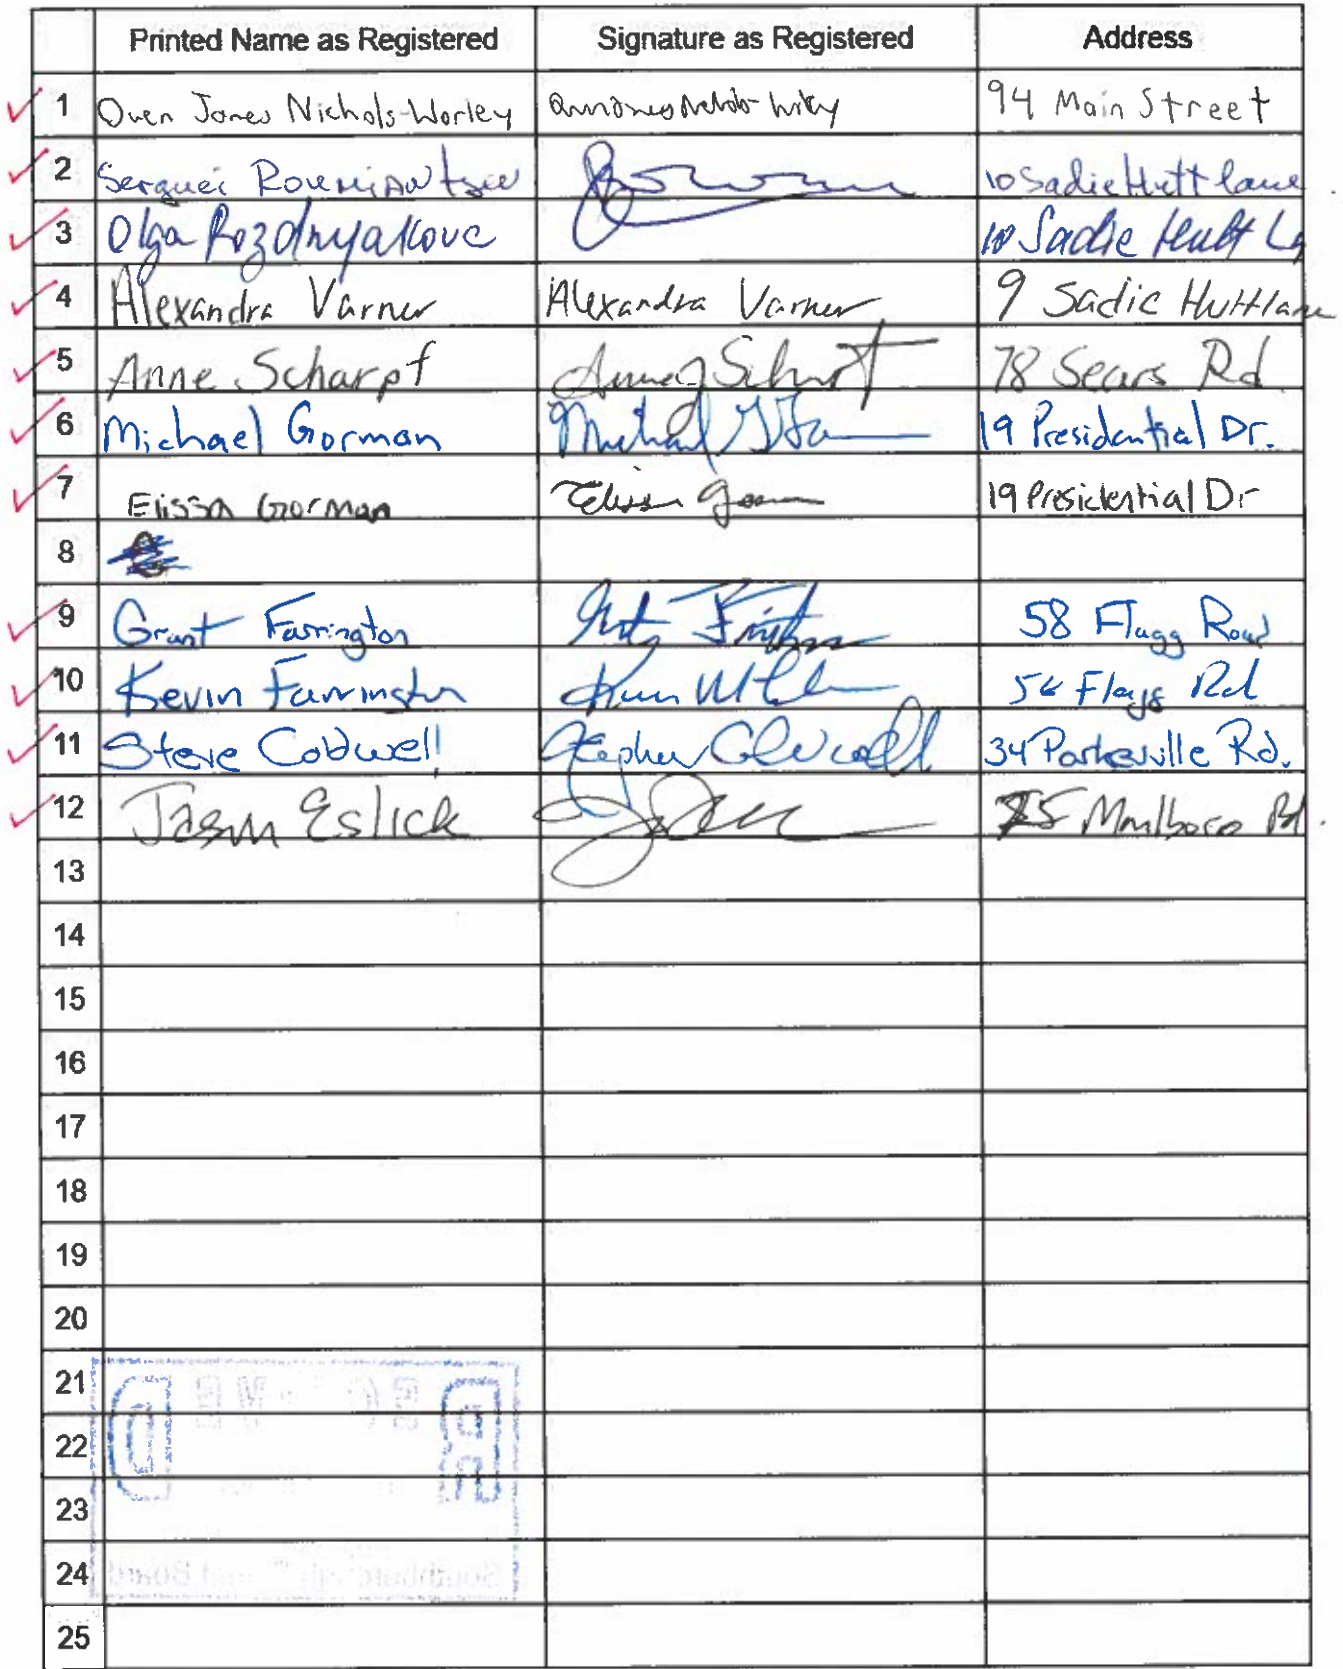 Printed Name as Registered Signature as Registered Address
1 Owen Jones Nichols-Worley 94 Main Street
2 Serguei 10 Sadie Hutt lane.
3 Olga Pozdnyakova 10 Sadie Hutt Ln
4 Alexandra Varner Alexandra Varner 9 Sadie Hutt lane
5 Anne Scharpf 78 Sears Rd
6 Michael Gorman Michael 19 Presidential Dr.
7 Elissa Gorman Elissa 19 Presidential Dr
8
9 Grant Farrington 58 Flagg Road
10 Kevin Farrington Flagg Rd
11 Steve Coldwell Stephen Coldwell 34 Parkerville Rd.
12 Jason Eslick Marlboro Rd.
13
14
15
16
17
18
19
20
21
22
23
24
25